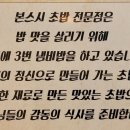 본스시 초밥 전문점은
밥 맛을 살리기 위해
에 3번 냄비밥을 하고 있습니
의 정신으로 만들어 가는 초밥
한 재료로 만든 맛있는 초밥으
님들의 감동의 식사를 준비합